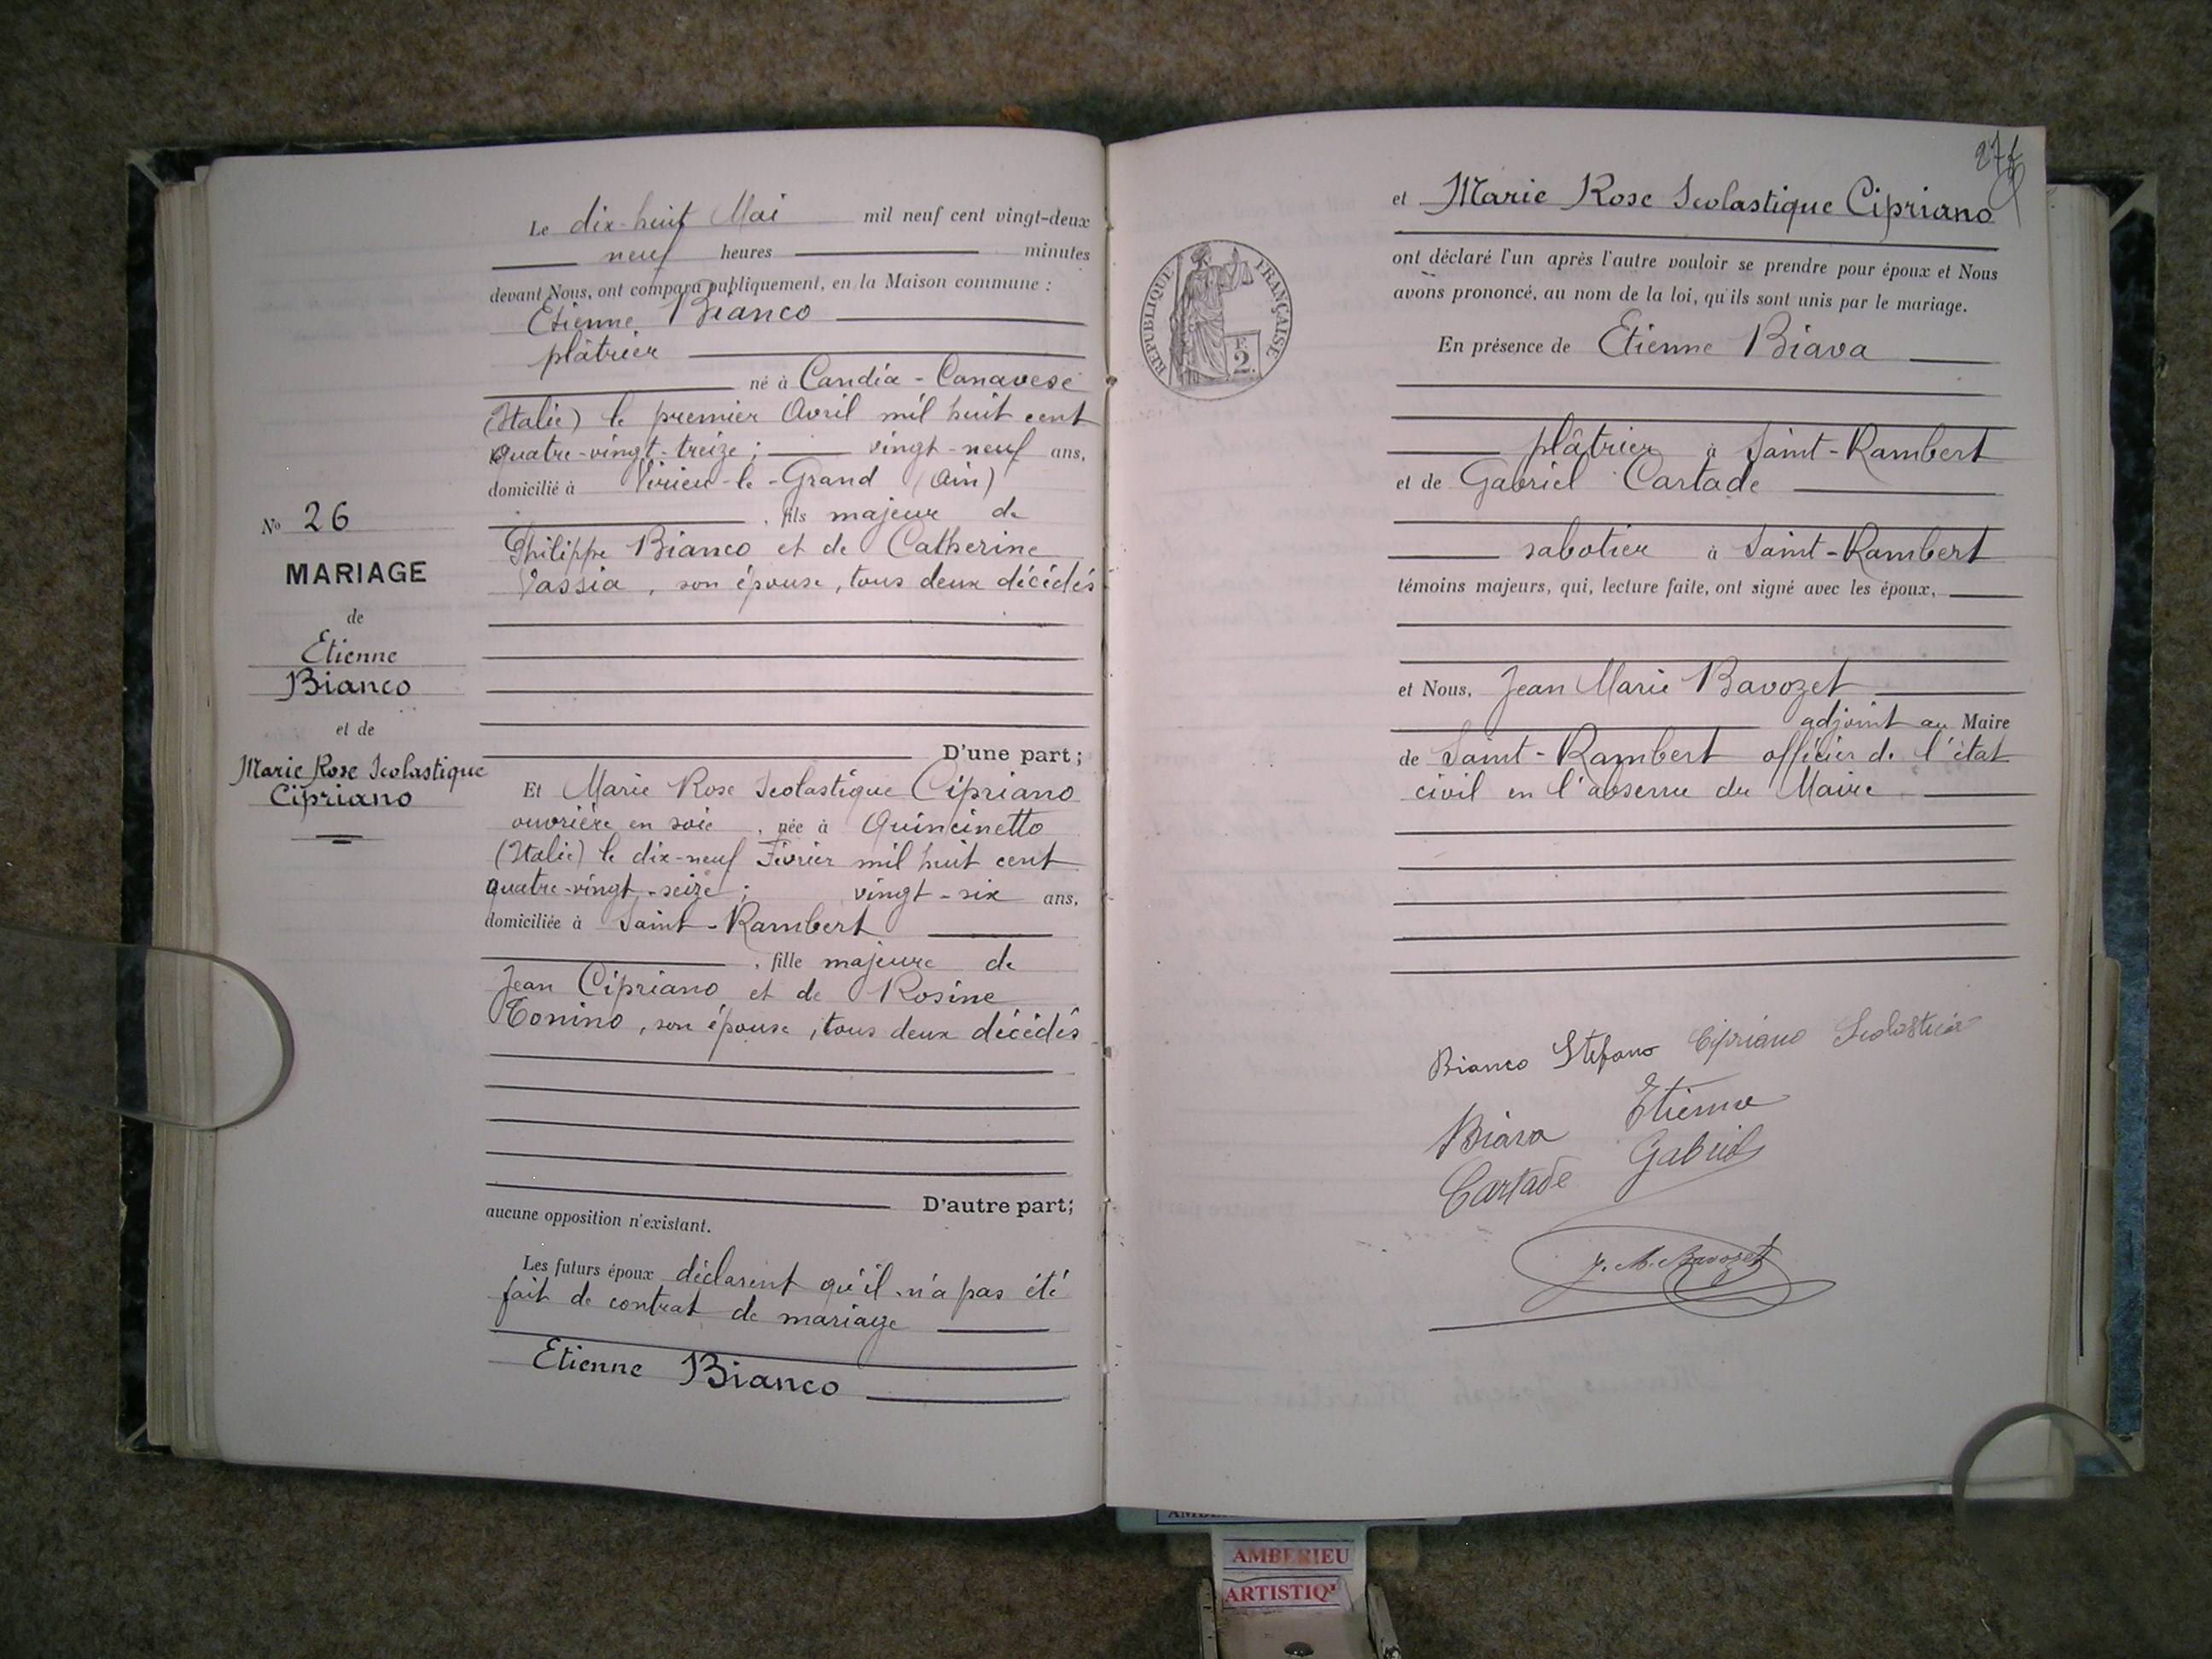 Le dix-huit Mai mil neuf cent vingt-deux
neuf heures minutes
devant Nous, ont comparu publiquement, en la Maison commune :
Etienne Bianco
plâtrier
né à Candia - Canavese
(Italie) le premier Avril mil huit cent
quatre-vingt-treize ; vingt-neuf ans,
domicilié à Virieu-le-Grand (Ain)
, fils majeur de
Philippe Bianco et de Catherine
Vassia, son épouse, tous deux décédés
D'une part ;
Et Marie Rose Scolastique Cipriano
ouvrière en soie, née à Quincinetto
(Italie) le dix-neuf Février mil huit cent
quatre-vingt-seize ; vingt-six ans,
domiciliée à Saint-Rambert
, fille majeure de
Jean Cipriano et de Rosine
Tonino, son épouse, tous deux décédés
D'autre part;
aucune opposition n'existant.
Les futurs époux déclarent qu'il n'a pas été
fait de contrat de mariage
Etienne Bianco
No 26
MARIAGE
de
Etienne
Bianco
et de
Marie Rose Scolastique
Cipriano
et Marie Rose Scolastique Cipriano
ont déclaré l'un après l'autre vouloir se prendre pour époux et Nous
avons prononcé, au nom de la loi, qu'ils sont unis par le mariage.
En présence de Etienne Biava
plâtrier à Saint-Rambert
et de Gabriel Cartade
sabotier à Saint-Rambert
témoins majeurs, qui, lecture faite, ont signé avec les époux,
et Nous, Jean Marie Bavozet
adjoint au Maire
de Saint-Rambert officier de l'état
civil en l'absence du Maire
Bianco Stefano Cipriano Scolastica
Biava Etienne
Cartade Gabriel
J. M. Bavozet
REPUBLIQUE FRANÇAISE
F.
2.
AMBERIEU
ARTISTIQ